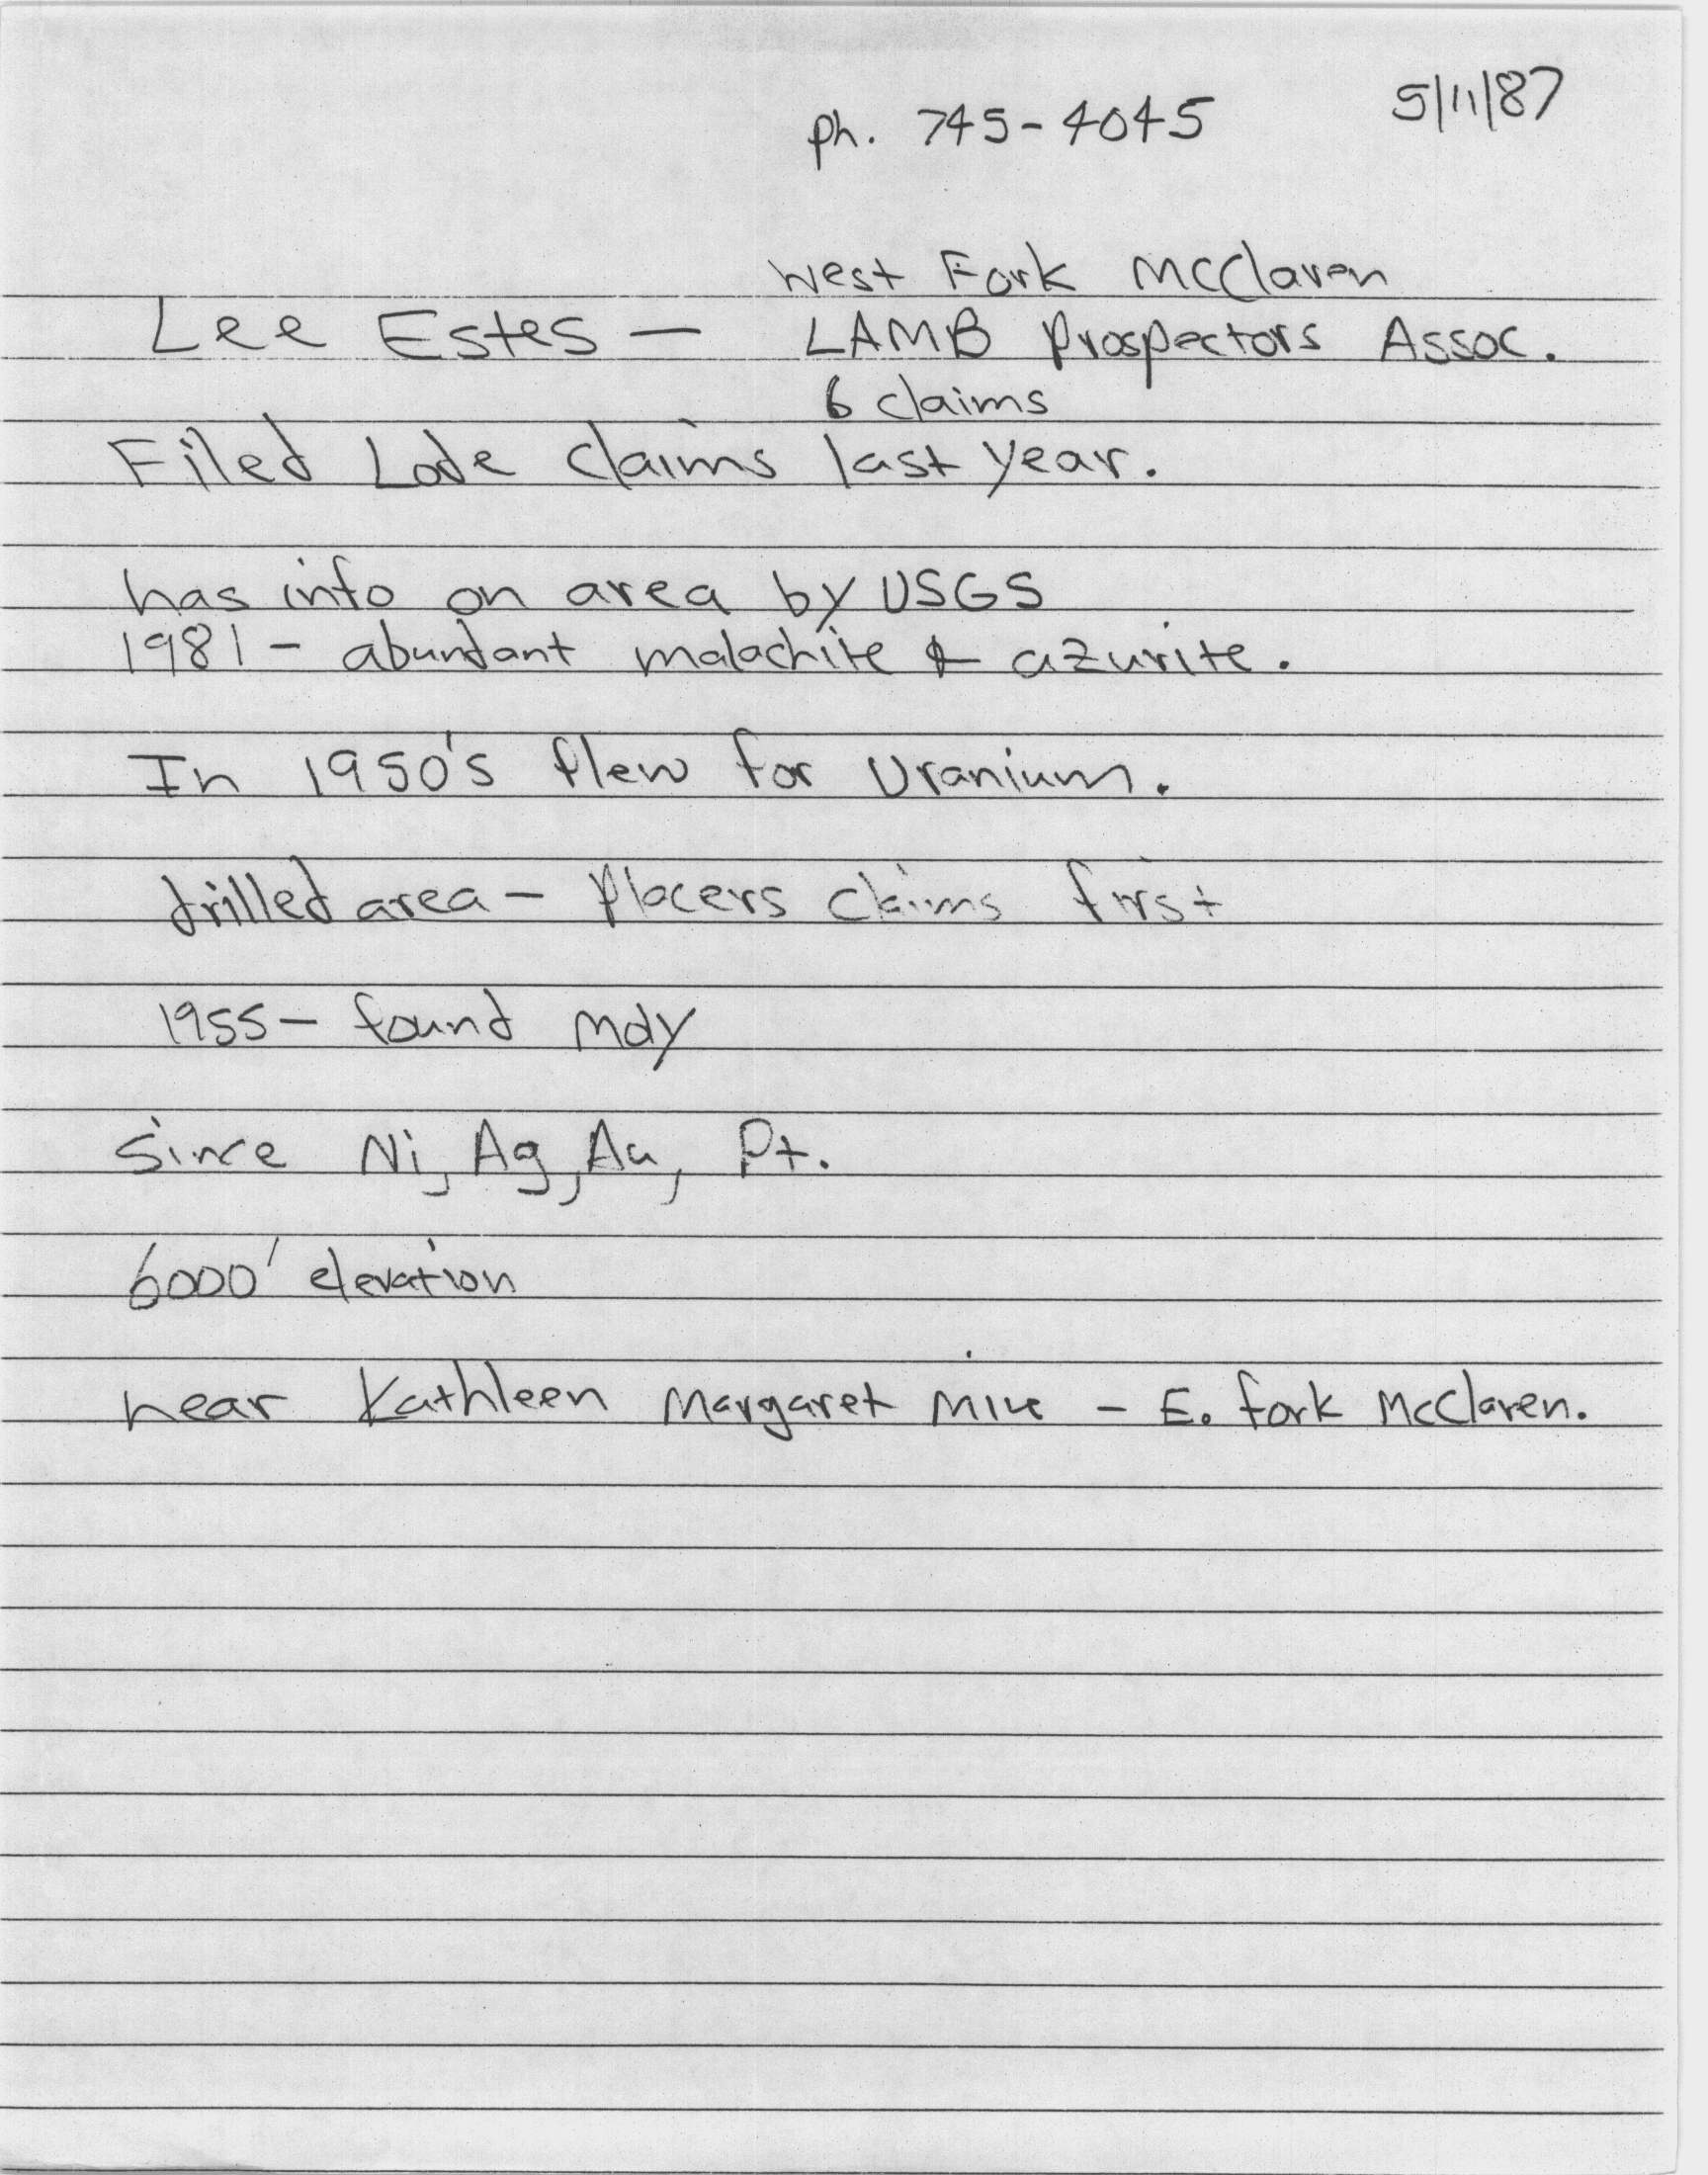 ph. 745-4045 5/11/87
West Fork McClaren
Lee Estes — LAMB Prospectors Assoc.
6 claims
Filed Lode Claims last year.
has info on area by USGS
1981 - abundant malachite & azurite.
In 1950's flew for Uranium.
drilled area - placers claims first
1955 - found moly
Since Ni, Ag, Au, Pt.
6000' elevation
near Kathleen Margaret Mine - E. fork McClaren.